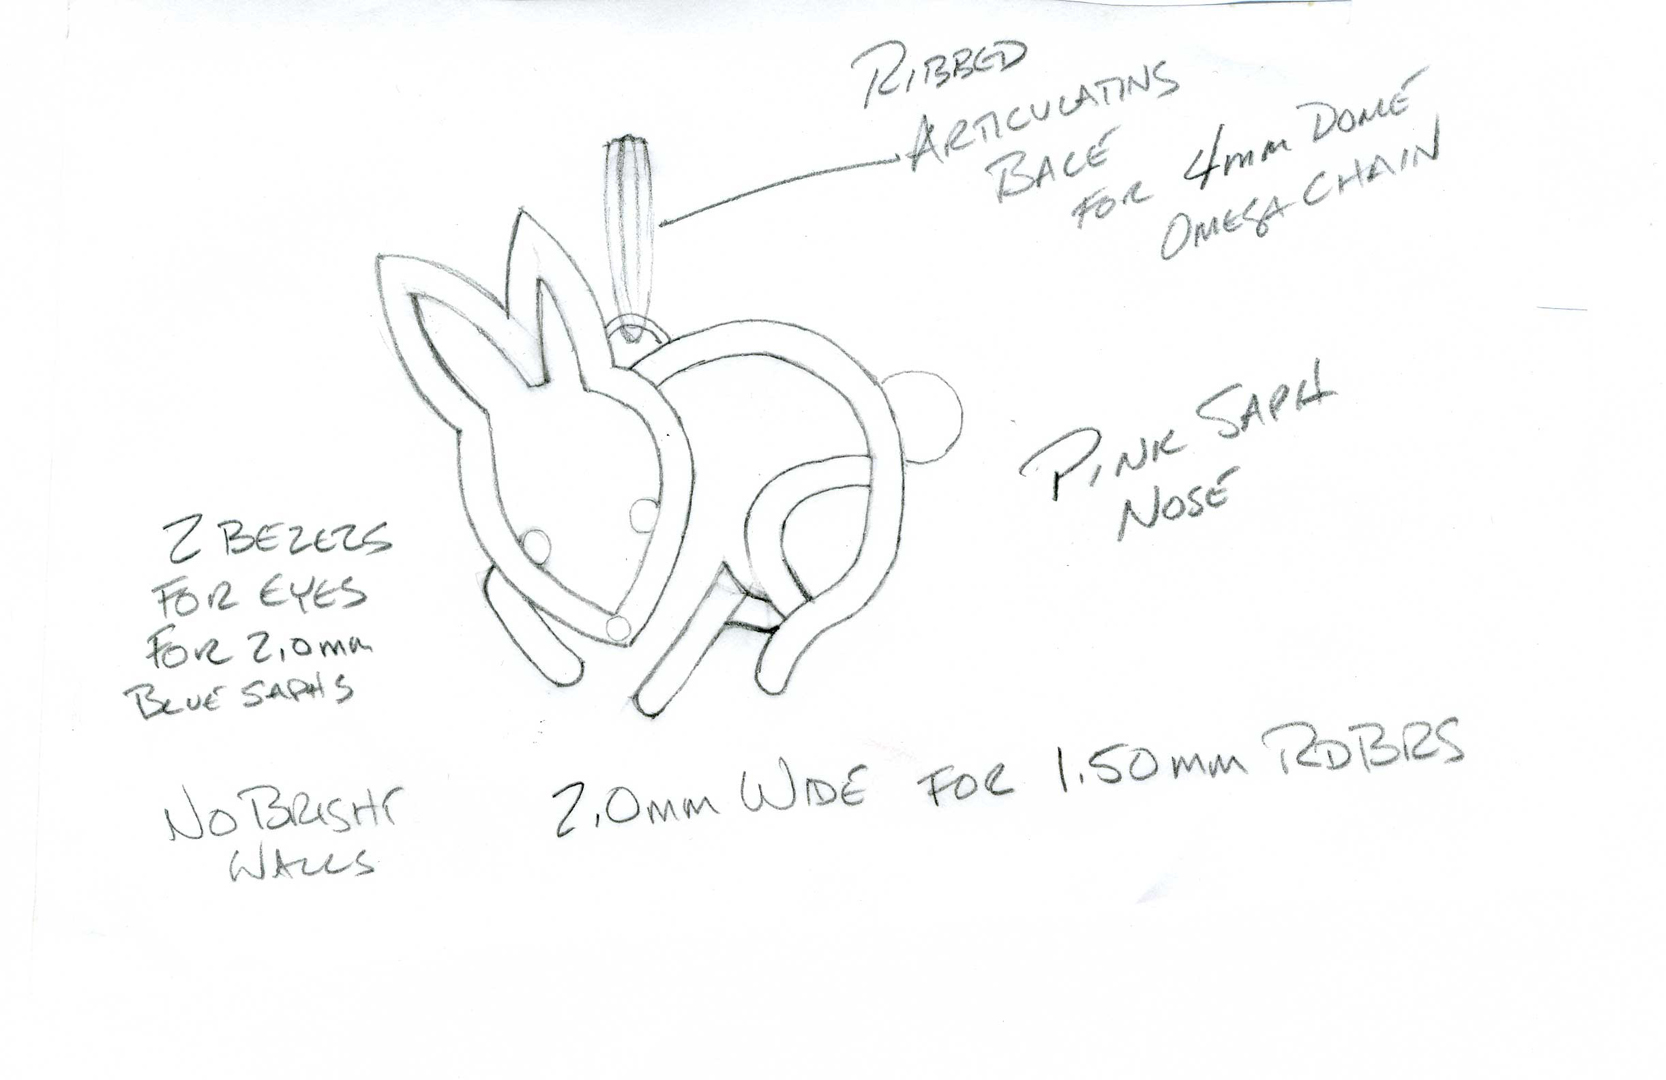 RIBBED
ARTICULATING
BALE
FOR 4mm DOME
OMEGA CHAIN
PINK SAPH
NOSE
2 BEZELS
FOR EYES
FOR 2.0mm
BLUE SAPHS
NO BRIGHT
WALLS
2.0mm WIDE FOR 1.50mm RDBRS